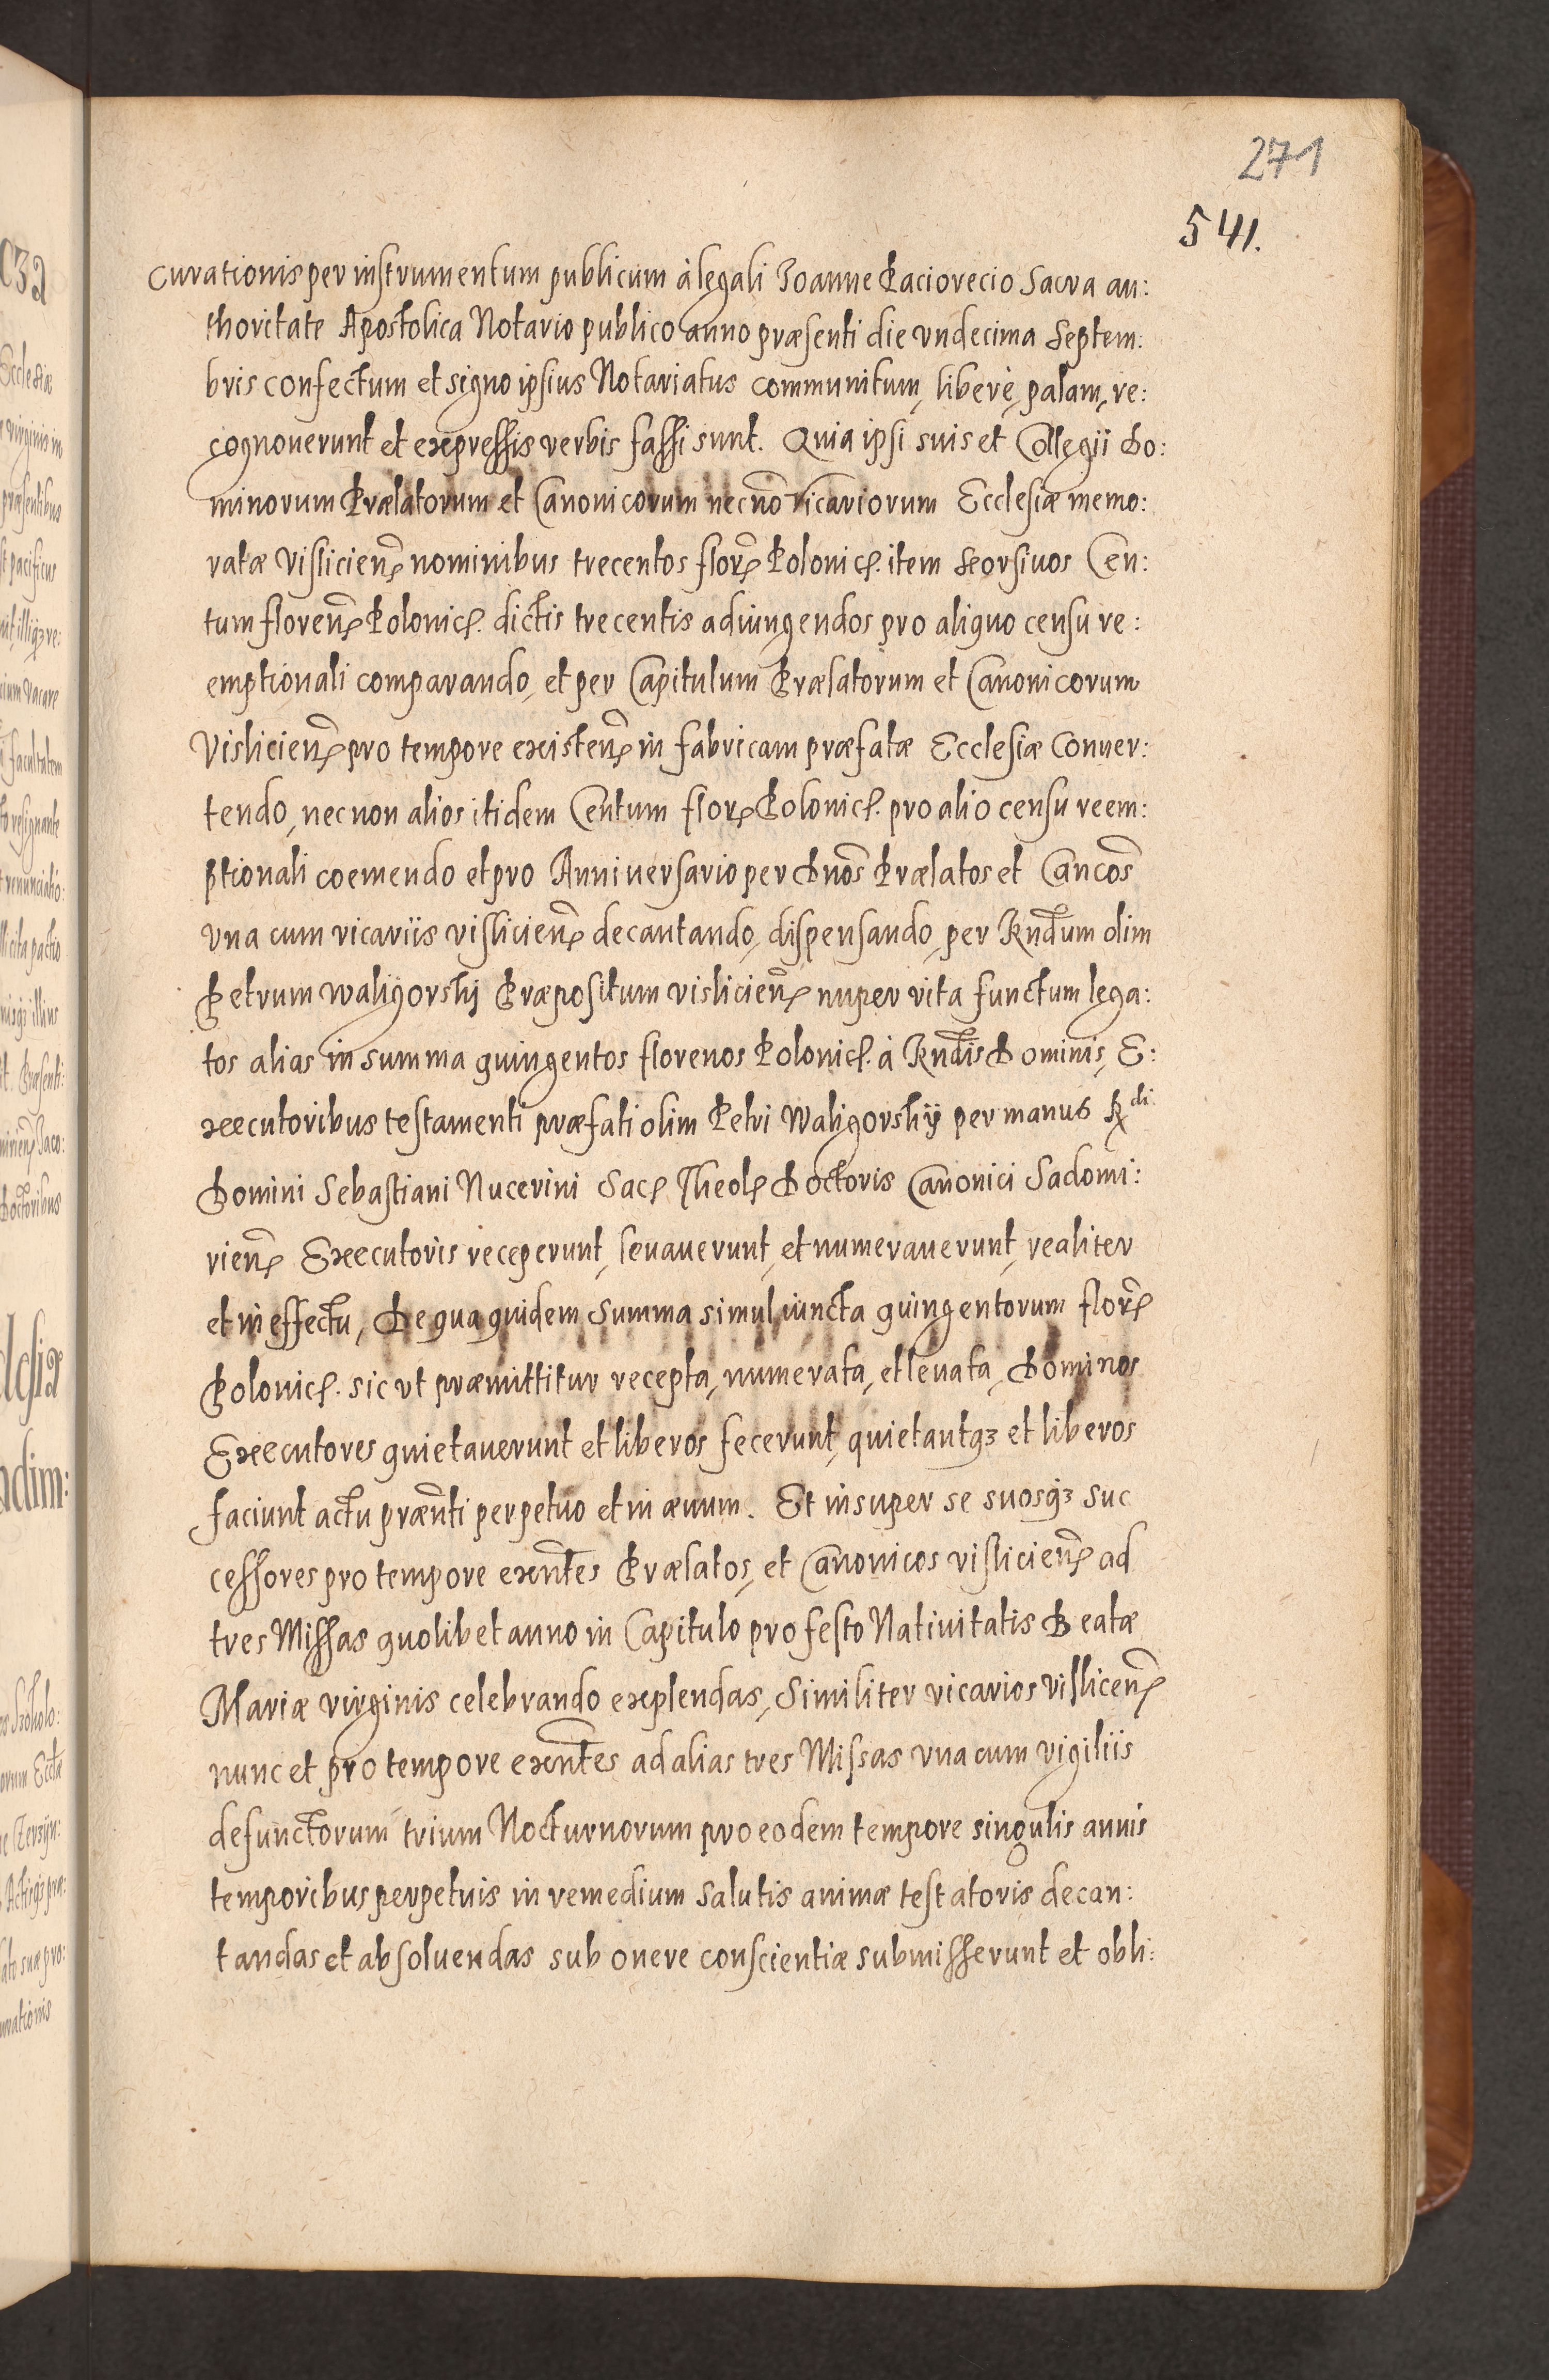 271
541.
curationis per instrumentum publicum à legali Joanne Paciorecio Sacra au:
thoritate Apostolica Notario publico anno præsenti die vndecima Septem:
bris confectum et signo ipsius Notariatus communitum, liberè, palam, re:
cognouerunt et expressis verbis fassi sunt. Quia ipsi suis et Collegii Do:
minorum Prælatorum et Canonicorum necnõ Vicariorum Ecclesiæ memo:
ratæ Visliciens̃ nominibus trecentos flor̃ Polonicꝭ. item seorsiuos Cen:
tum florenꝭ Polonicꝭ. dictis trecentis adiungendos pro aliquo censu re:
emptionali comparando, et per Capitulum Prælatorum et Canonicorum
Vislicienꝭ pro tempore existenꝭ in fabricam præfatæ Ecclesiæ conuer:
tendo, necnon alios itidem Centum florꝭ Polonicꝭ. pro alio censu reem:
ptionali coemendo et pro Anniuersario per Dnos̃ Prælatos et Cancos̃
vna cum vicariis vislicienꝭ decantando, dispensando, per Rnd̃um olim
Petrum Waligorskij Præpositum vislicienꝭ nuper vita functum lega:
tos alias in summa quingentos florenos Polonicꝭ. à Rnd̃is Dominis, E:
xecutoribus testamenti præfati olim Petri Waligorskij per manus R<sup>di</sup>
Domini Sebastiani Nucerini Sacꝭ Theolꝭ Doctoris Canonici Sadomi:
rienꝭ Executoris receperunt, leuauerunt, et numerauerunt, realiter
et in effectu, De qua quidem Summa simul iuncta quingentorum florꝭ
Polonicꝭ. sic vt præmittitur recepta, numerata, et leuata, Dominos
Executores quietauerunt et liberos fecerunt, quietantqꝫ et liberos
faciunt actu præñti perpetuo et in æuum. Et insuper se suosqꝫ suc
cessores pro tempore exñtes Prælatos, et Canonicos vislicienꝭ ad
tres Missas quolibet anno in Capitulo pro festo Natiuitatis Beatæ
Mariæ virginis celebrando explendas, Similiter vicarios vislicenꝭ
nunc et pro tempore exñtes ad alias tres Missas vna cum vigiliis
defunctorum trium Nocturnorum pro eodem tempore singulis annis
temporibus perpetuis in remedium salutis animæ testatoris decan:
tandas et absoluendas sub onere conscientiæ submisserunt et obli: